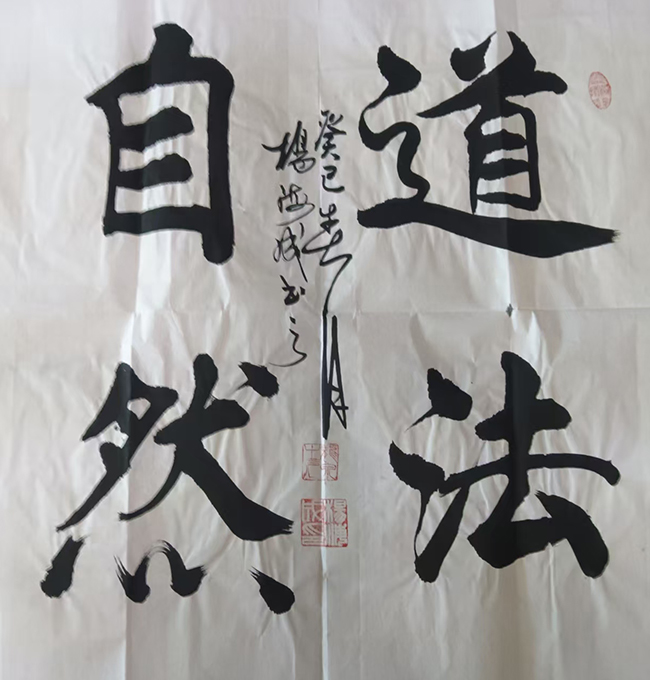 道法
自然
癸巳春月
楊海成书之